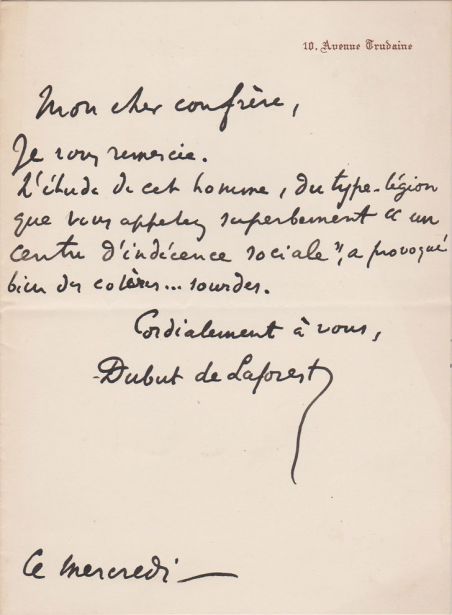 10, Avenue Trudaine
Mon cher confrère,
Je vous remercie.
L'étude de cet homme, du type-légion
que vous appelez superbement "un
centre d'indécence sociale", a provoqué
bien des colères... sourdes.
Cordialement à vous,
Dubut de Laforest
Ce mercredi —